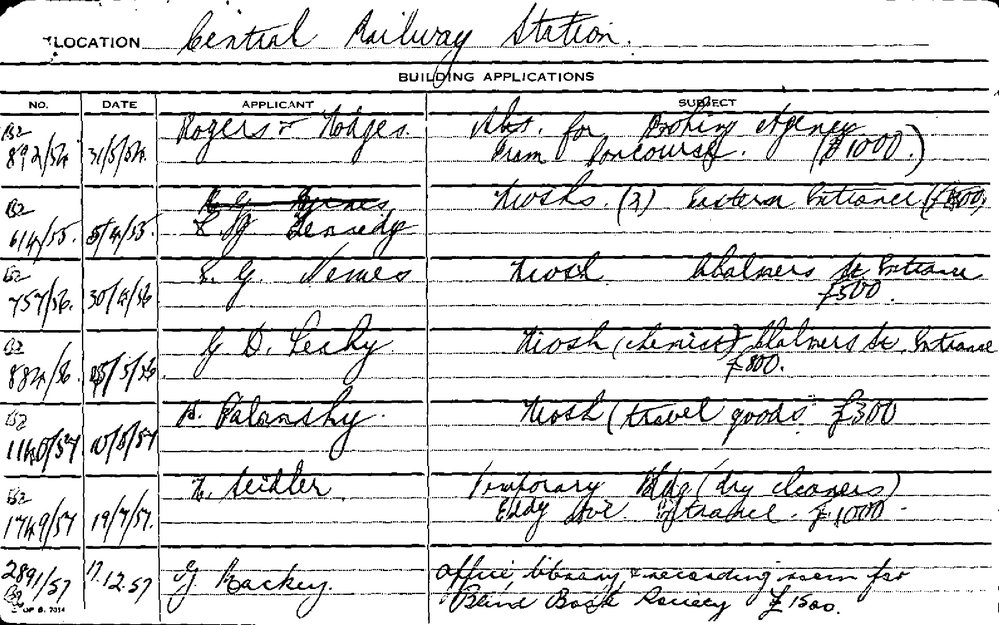 LOCATION Central Railway Station.
BUILDING APPLICATIONS
NO. DATE APPLICANT SUBJECT
B2 892/54 31/5/54. Rogers & Hodges. Alts. for Booking Agency
Tram Concourse. (£1000.)
B2 614/55. 5/4/55. Kiosks. (3) Eastern Entrance
E. G. Kennedy
B2 757/56. 30/4/56 E. G. Nemes Kiosk Chalmers St Entrance
£500.
B2 884/56. /5/56 G D. Leahy. Kiosk (chemist) Chalmers St. Entrance
£800.
B2 1140/57 10/5/57 Palansky. Kiosk (travel goods £300
B2 1749/57 19/7/57. H. Seidler. Temporary Bldg (dry cleaners)
Eddy Ave. Entrance. £1000.
2891/57 17.12.57 G Mackey. Office, library, & recording room for
B2 Blind Book Society £1500.